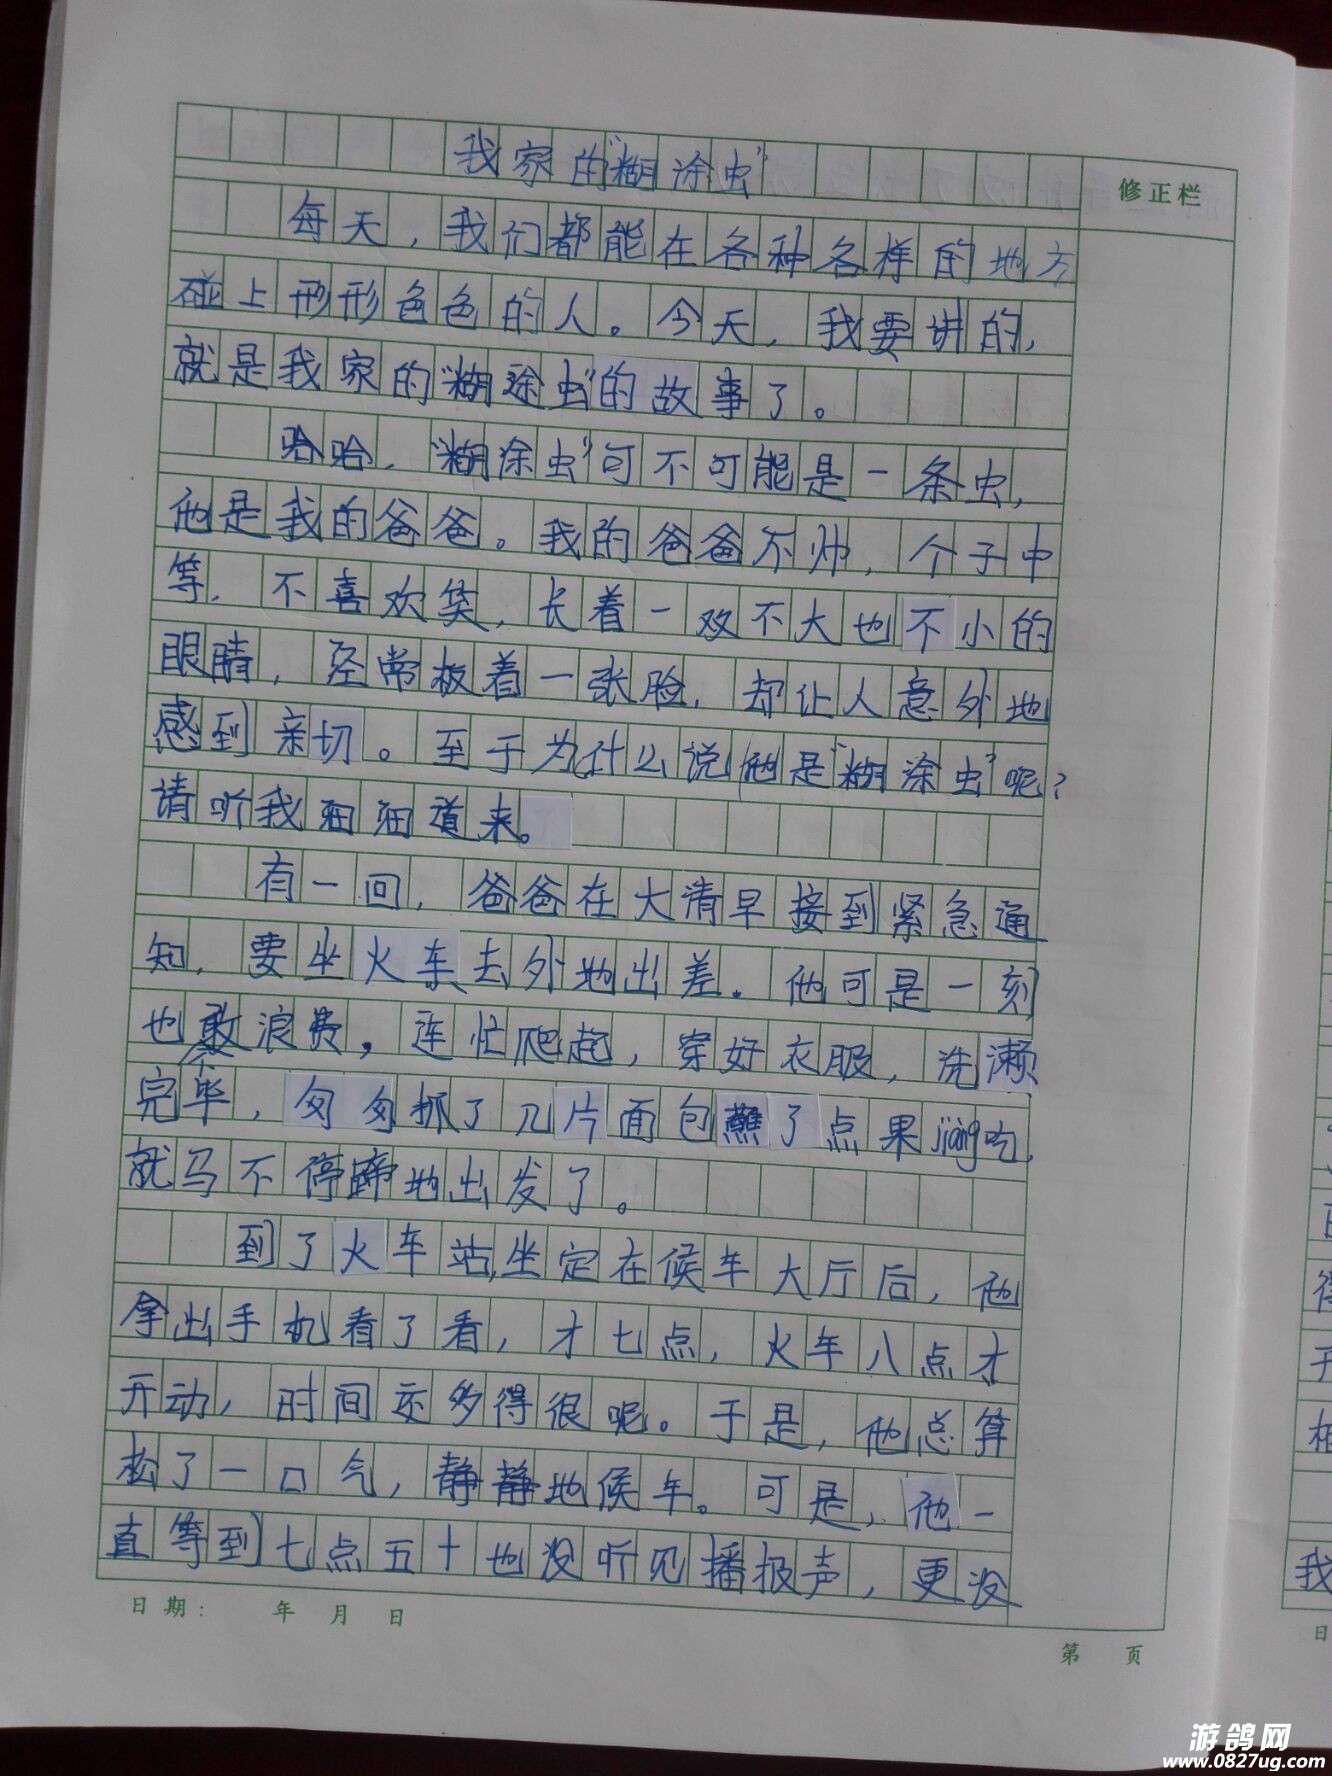 我家的“糊涂虫”
修正栏
每天，我们都能在各种各样的地方
碰上形形色色的人。今天，我要讲的，
就是我家的“糊涂虫”的故事了。
哈哈，“糊涂虫”可不可能是一条虫，
他是我的爸爸。我的爸爸不帅，个子中
等，不喜欢笑，长着一双不大也不小的
眼睛，经常板着一张脸，却让人意外地
感到亲切。至于为什么说他是“糊涂虫”呢？
请听我细细道来。
有一回，爸爸在大清早接到紧急通
知，要坐火车去外地出差。他可是一刻
也不敢浪费，连忙爬起，穿好衣服，洗漱
完毕，匆匆抓了几片面包蘸了点果jiàng吃，
就马不停蹄地出发了。
到了火车站，坐定在候车大厅后，他
拿出手机看了看，才七点，火车八点才
开动，时间还多得很呢。于是，他总算
松了一口气，静静地候车。可是，他一
直等到七点五十也没听见播报声，更没
日期： 年 月 日
第 页
我
日
游鸽网
www.0827ug.com